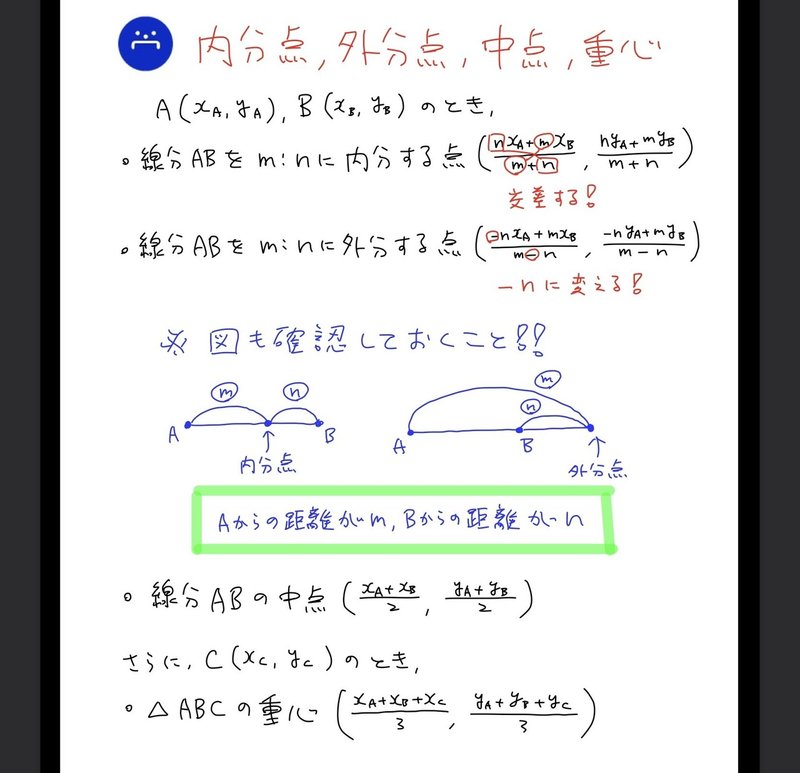 内分点,外分点,中点,重心
A(xA,yA),B(xB,yB)のとき,
・線分ABをm:nに内分する点((nxA+mxB)/(m+n), (nyA+myB)/(m+n))
交差する!
・線分ABをm:nに外分する点((-nxA+mxB)/(m-n), (-nyA+myB)/(m-n))
-nに変える!
※図も確認しておくこと!!
m n
A B
↑
内分点
m
n
A B
↑
外分点
Aからの距離がm,Bからの距離がn
・線分ABの中点((xA+xB)/2, (yA+yB)/2)
さらに,C(xC,yC)のとき,
・△ABCの重心((xA+xB+xC)/3, (yA+yB+yC)/3)